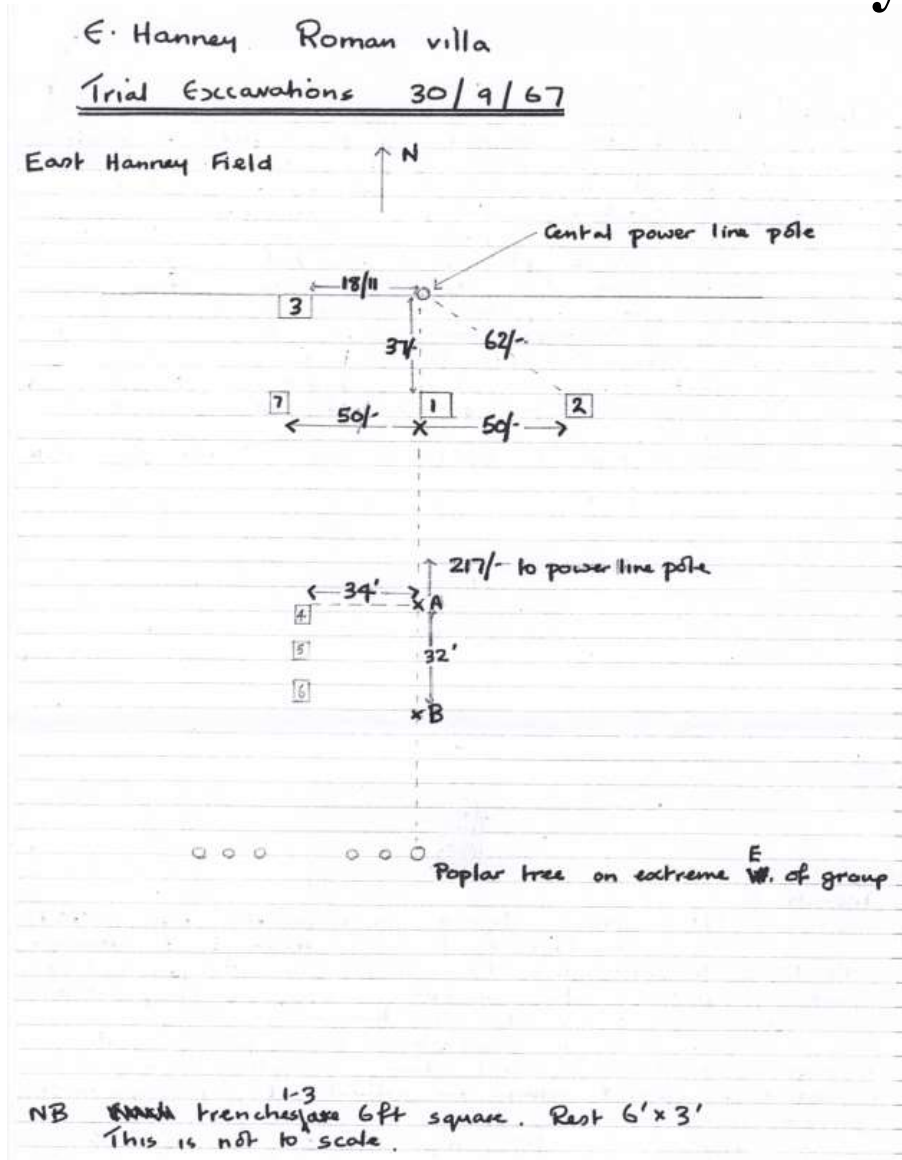 E. Hanney Roman villa
Trial Excavations 30/9/67
East Hanney Field
N
Cental power line pole
18/11
3
37/-
62/-
7
1
2
50/-
50/-
217/- to power line pole
34'
A
4
5
32'
6
B
E
Poplar tree on extreme W. of group
1-3
NB trenches are 6ft square. Rest 6' x 3'
This is not to scale.